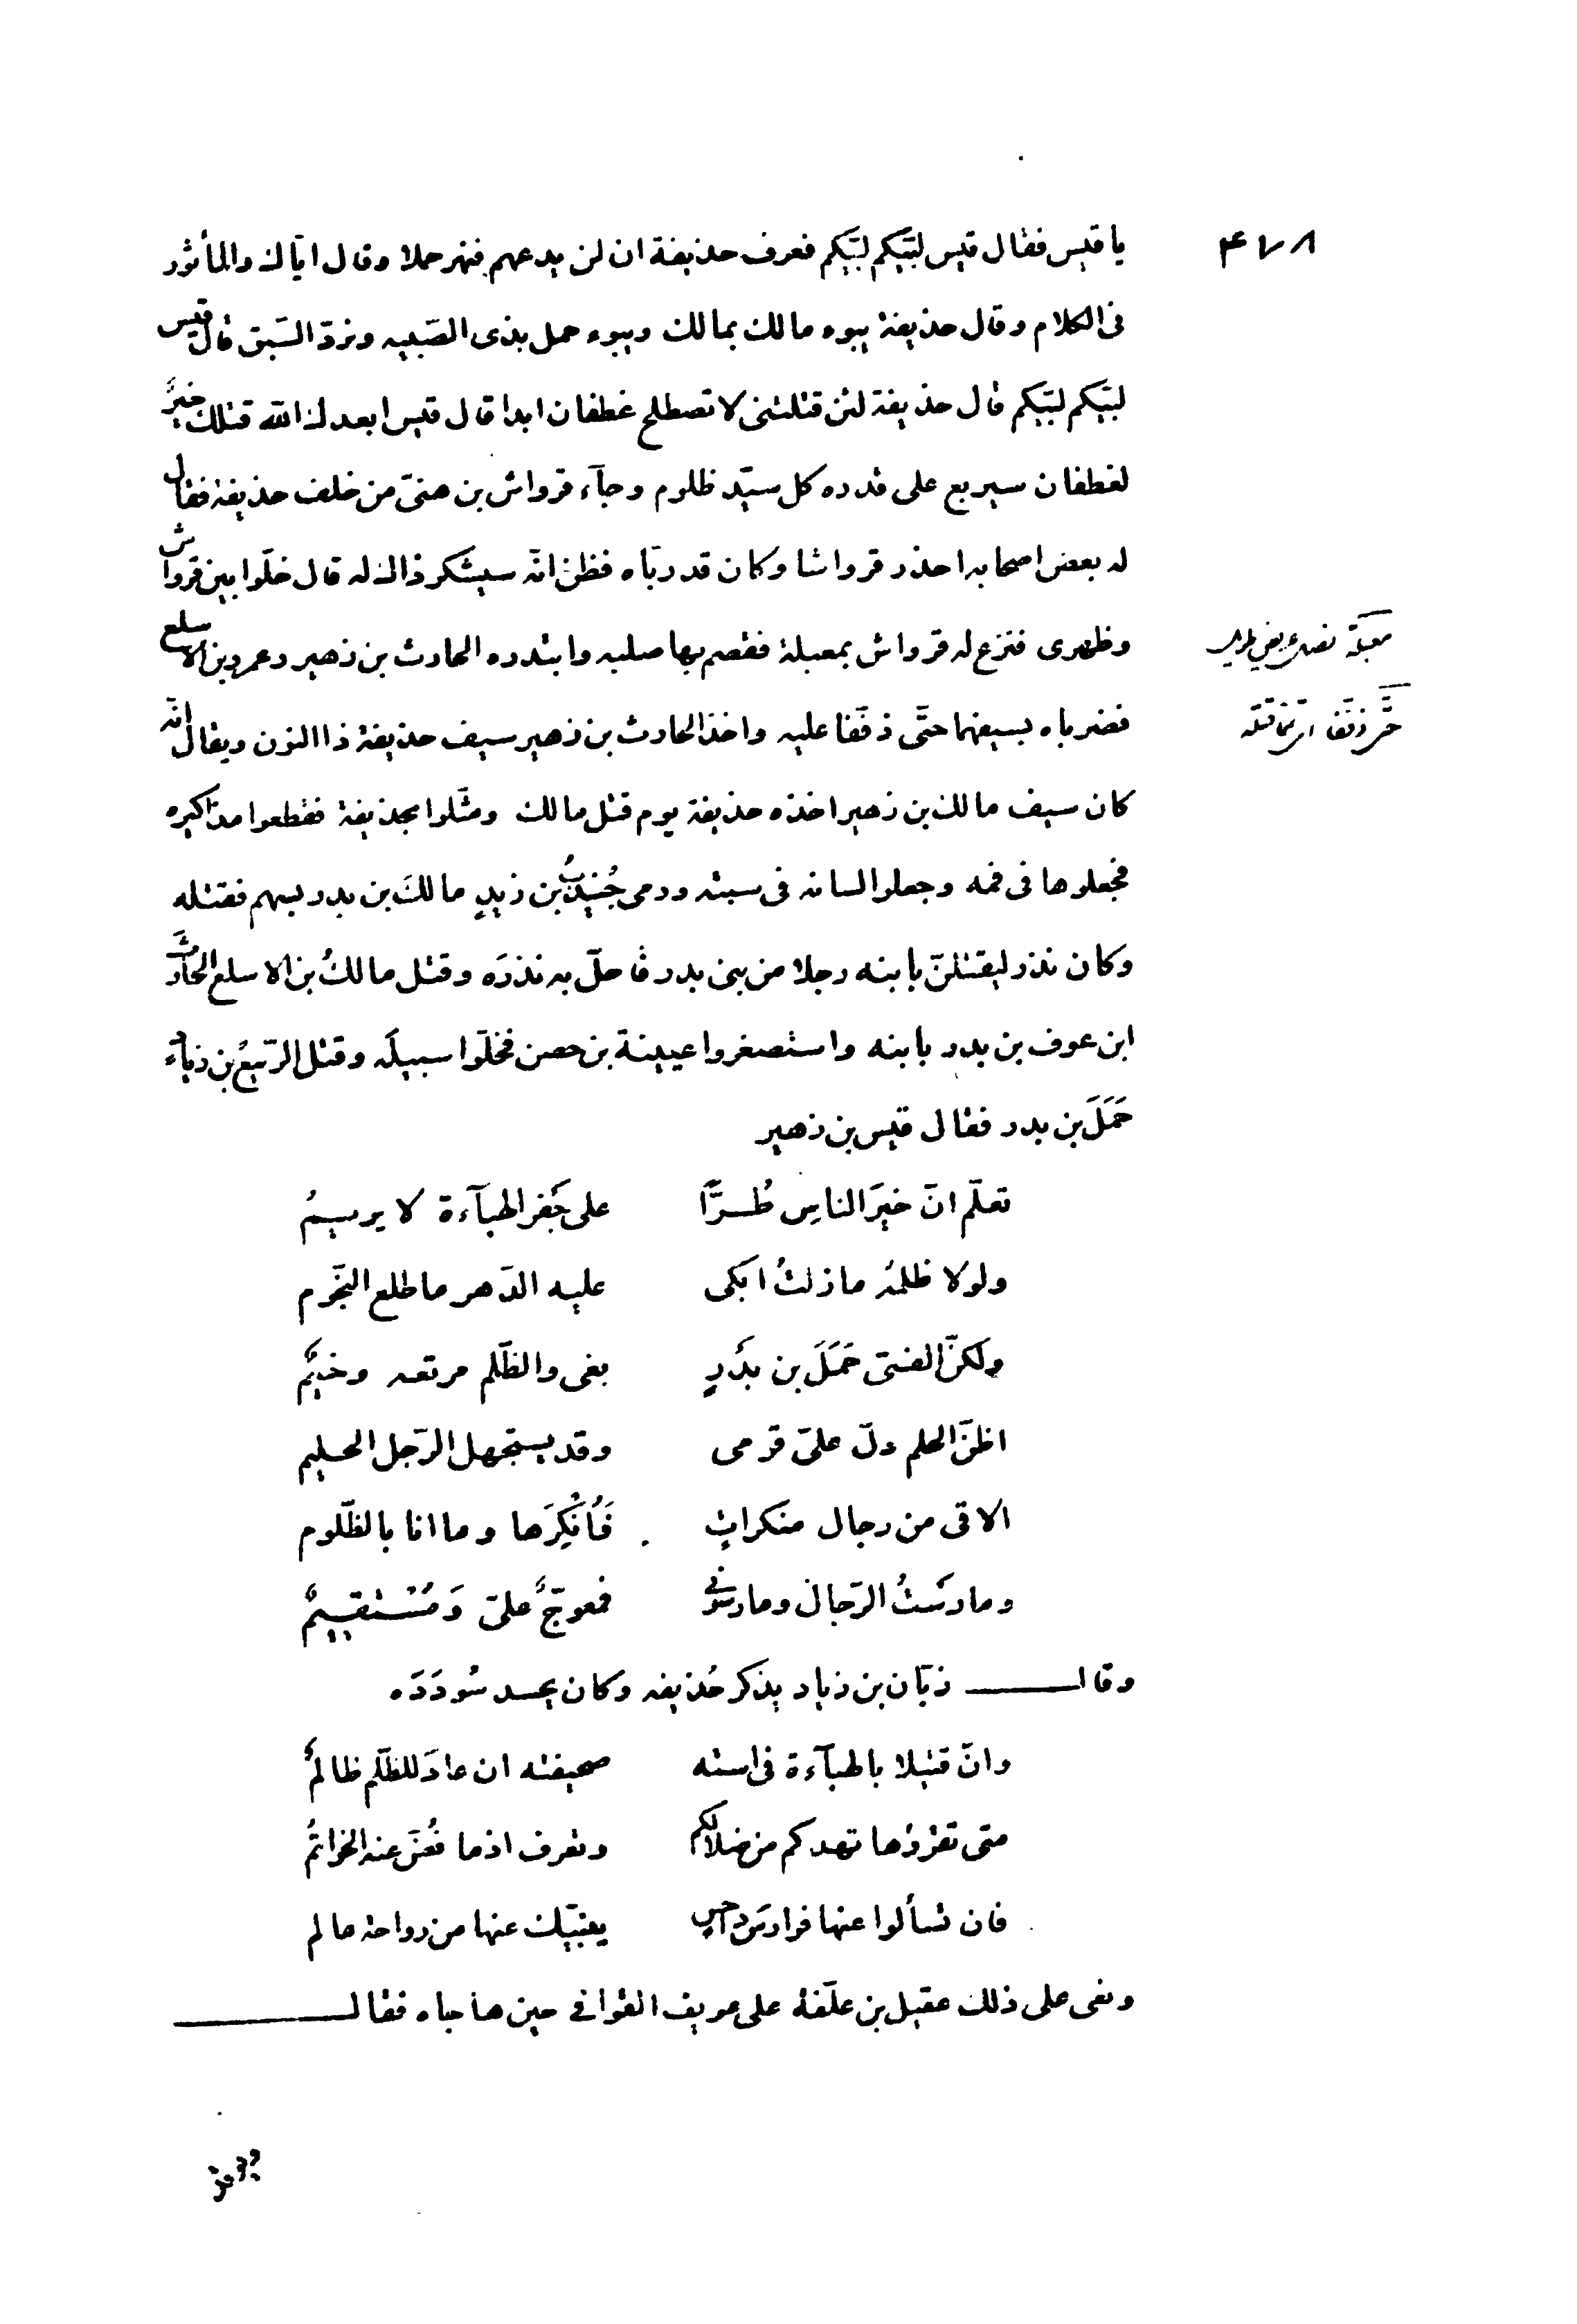 ٤٧٨
يا قيس فقال قيس لبّيكم لبّيكم فعرف حذيفة ان لن يدعهم فنهر حملا وقال ايّاك والمأثور
فى الكلام وقال حذيفة يبوء مالك بمالك ويبوء حمل بذى الصّبيه ونردّ السّبق قال قيس
لبّيكم لبّيكم قال حذيفة لئن قتلتنى لا تصطلح غطفان ابدا قال قيس ابعدك الله قتلك خيرٌ
لغطفان سيربع على قدره كل سيّد ظلوم وجآء قرواش بن هنىّ من خلف حذيفة فقال
له بعض اصحابه احذر قرواشا وكان قد ربّاه فظن انّه سيشكر ذالك له قال خلّوا بين قرواش
وظهرى فنزع له قرواش بمعبلة فقصم بها صلبه وابتدره الحارث بن زهير وعمرو بن الاسلع
معبلة نصل عريض طويل
فضرباه بسيفهما حتّى ذفّفا عليه واخذ الحارث بن زهير سيف حذيفة ذا النون ويقال انّه
حتّى ذفّفا اى تمّما قتله
كان سيف مالك بن زهير اخذه حذيفة يوم قتل مالك ومثّلوا بحذيفة فقطعوا مذاكيره
فجعلوها فى فمه وجعلوا لسانه فى سبته ورمى جُنيدبُ بن زيدٍ مالكَ بن بدر بسهم فقتله
وكان نذر ليقتلنّ بابنه رجلا من بنى بدر فاحلّ به نذرَه وقتل مالكُ بن الاسلع الحارثَ
ابن عوف بن بدر بابنه واستصغروا عيينة بن حصن فخلّوا سبيلَه وقتل الرّبيعُ بن زيادٍ
حَمَلَ بن بدر فقال قيس بن زهير
تعلّم انّ خيرَ الناسِ طُـرًّا على جَفر الهبآءة لا يريـمُ
ولولا ظلمُه ما زلتُ ابكى عليه الدّهر ما طلع النّجوم
ولكنّ الفتى حَمَلَ بن بَدرٍ بغى والظّلم مرتعه وخيمٌ
اظنّ الحلم دلّ علىّ قومى وقد يستجهل الرّجل الحليم
الاقى من رجال منكراتٍ فَأُنْكِرَها وما انا بالظّلوم
ومارَستُ الرّجال ومارسونى فمعوجٌّ علىّ وَمُستقيمٌ
وقالـــــ زبّان بن زياد يذكر حُذيفه وكان يحسد سُودَدَه
وانّ قتيلا بالهبآءة فى استه صحيفته ان عادَ للظّلم ظالمُ
متى تقرؤها تهدكم من ضلالكم وتعرف اذ ما فُضَّ عنه الخواتمُ
فان تسألوا عنها فوارسَ داحسٍ ينبّيك عنها من رواحة عالم
ونعى على ذلك عقيل بن علّفة على عويف القوافى حين هاجاه فقالـــــ